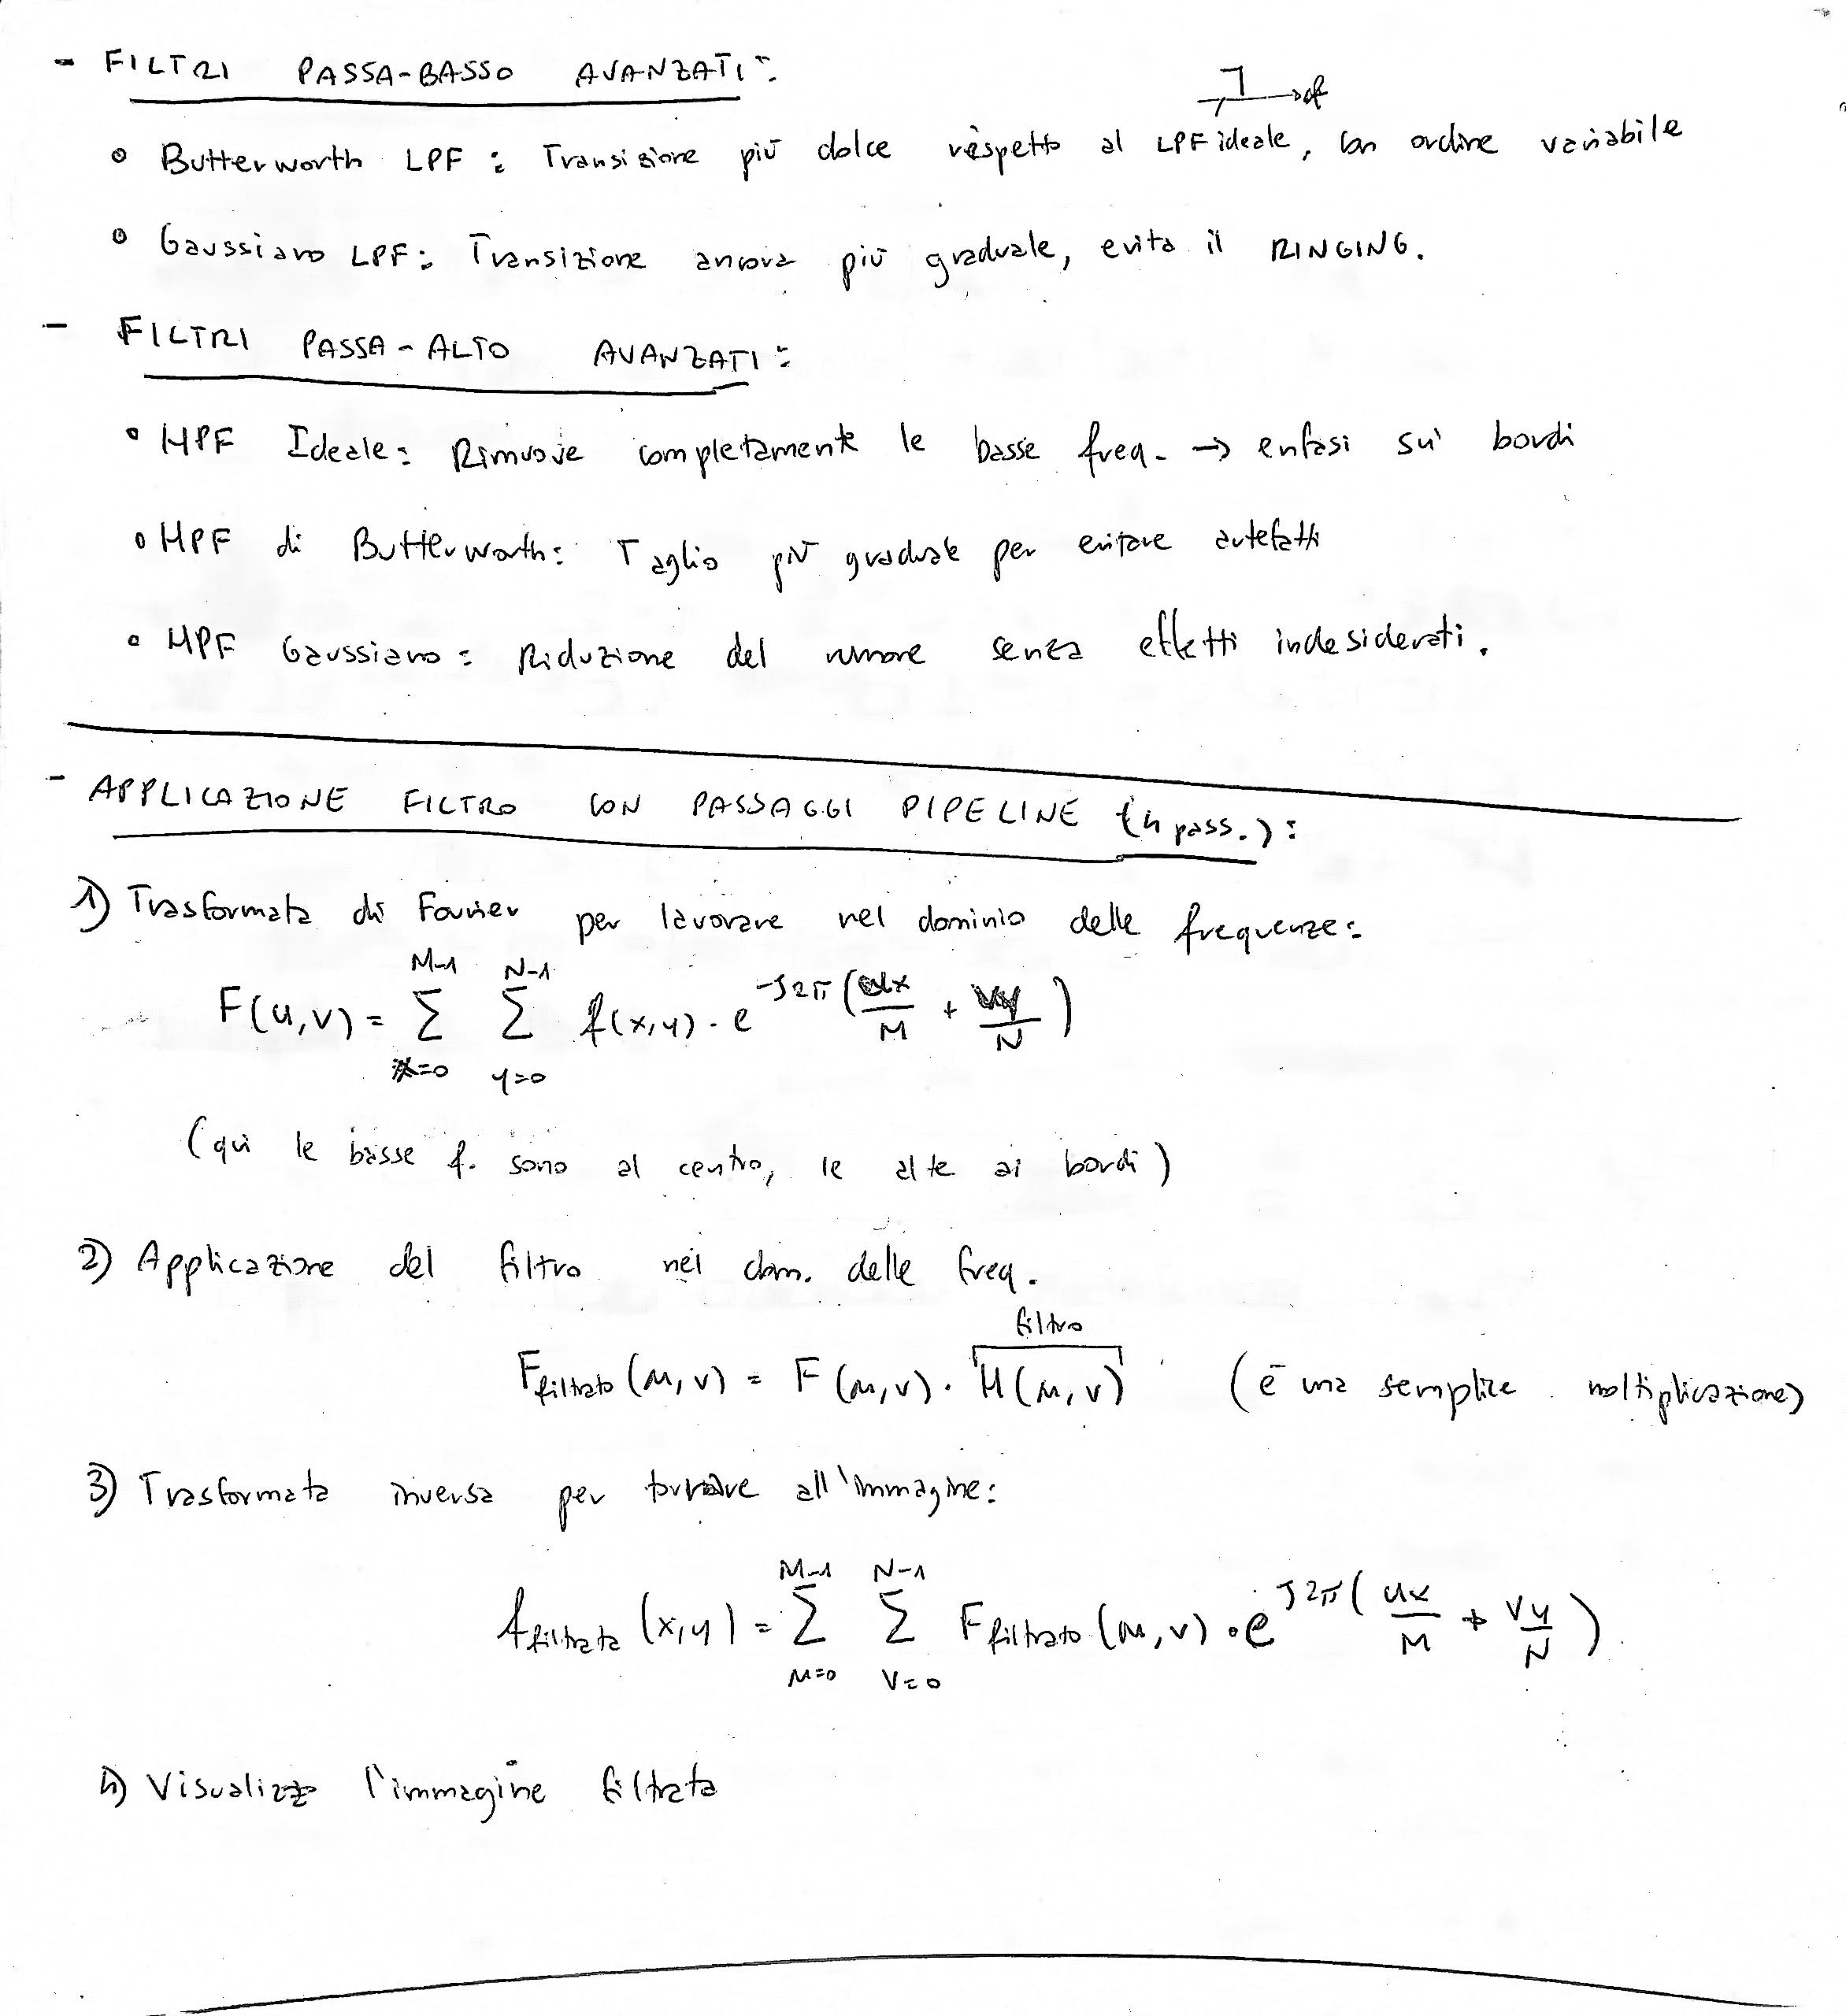 - FILTRI PASSA-BASSO AVANZATI:
f
• Butterworth LPF: Transizione più dolce rispetto al LPF ideale, con ordine variabile
• Gaussiano LPF: Transizione ancora più graduale, evita il RINGING.
- FILTRI PASSA-ALTO AVANZATI:
• HPF Ideale: Rimuove completamente le basse freq. → enfasi sui bordi
• HPF di Butterworth: Taglio più graduale per evitare artefatti
• HPF Gaussiano: Riduzione del rumore senza effetti indesiderati.
- APPLICAZIONE FILTRO CON PASSAGGI PIPELINE (4 pass.):
1) Trasformata di Fourier per lavorare nel dominio delle frequenze:
F(u,v) = Σ_{x=0}^{M-1} Σ_{y=0}^{N-1} f(x,y) · e^{-j2π(ux/M + vy/N)}
(qui le basse f. sono al centro, le alte ai bordi)
2) Applicazione del filtro nel dom. delle freq.
filtro
F_filtrato (u,v) = F(u,v) · H(u,v) (è una semplice moltiplicazione)
3) Trasformata inversa per tornare all'immagine:
f_filtrata (x,y) = Σ_{u=0}^{M-1} Σ_{v=0}^{N-1} F_filtrato (u,v) · e^{j2π(ux/M + vy/N)}
4) Visualizz l'immagine filtrata